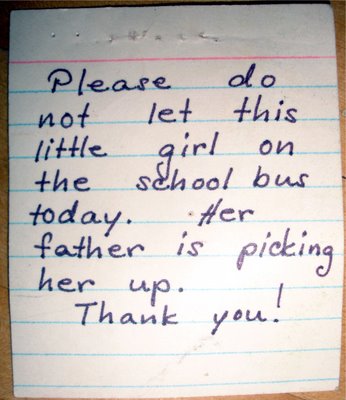 Please do
not let this
little girl on
the school bus
today. Her
father is picking
her up.
Thank you!